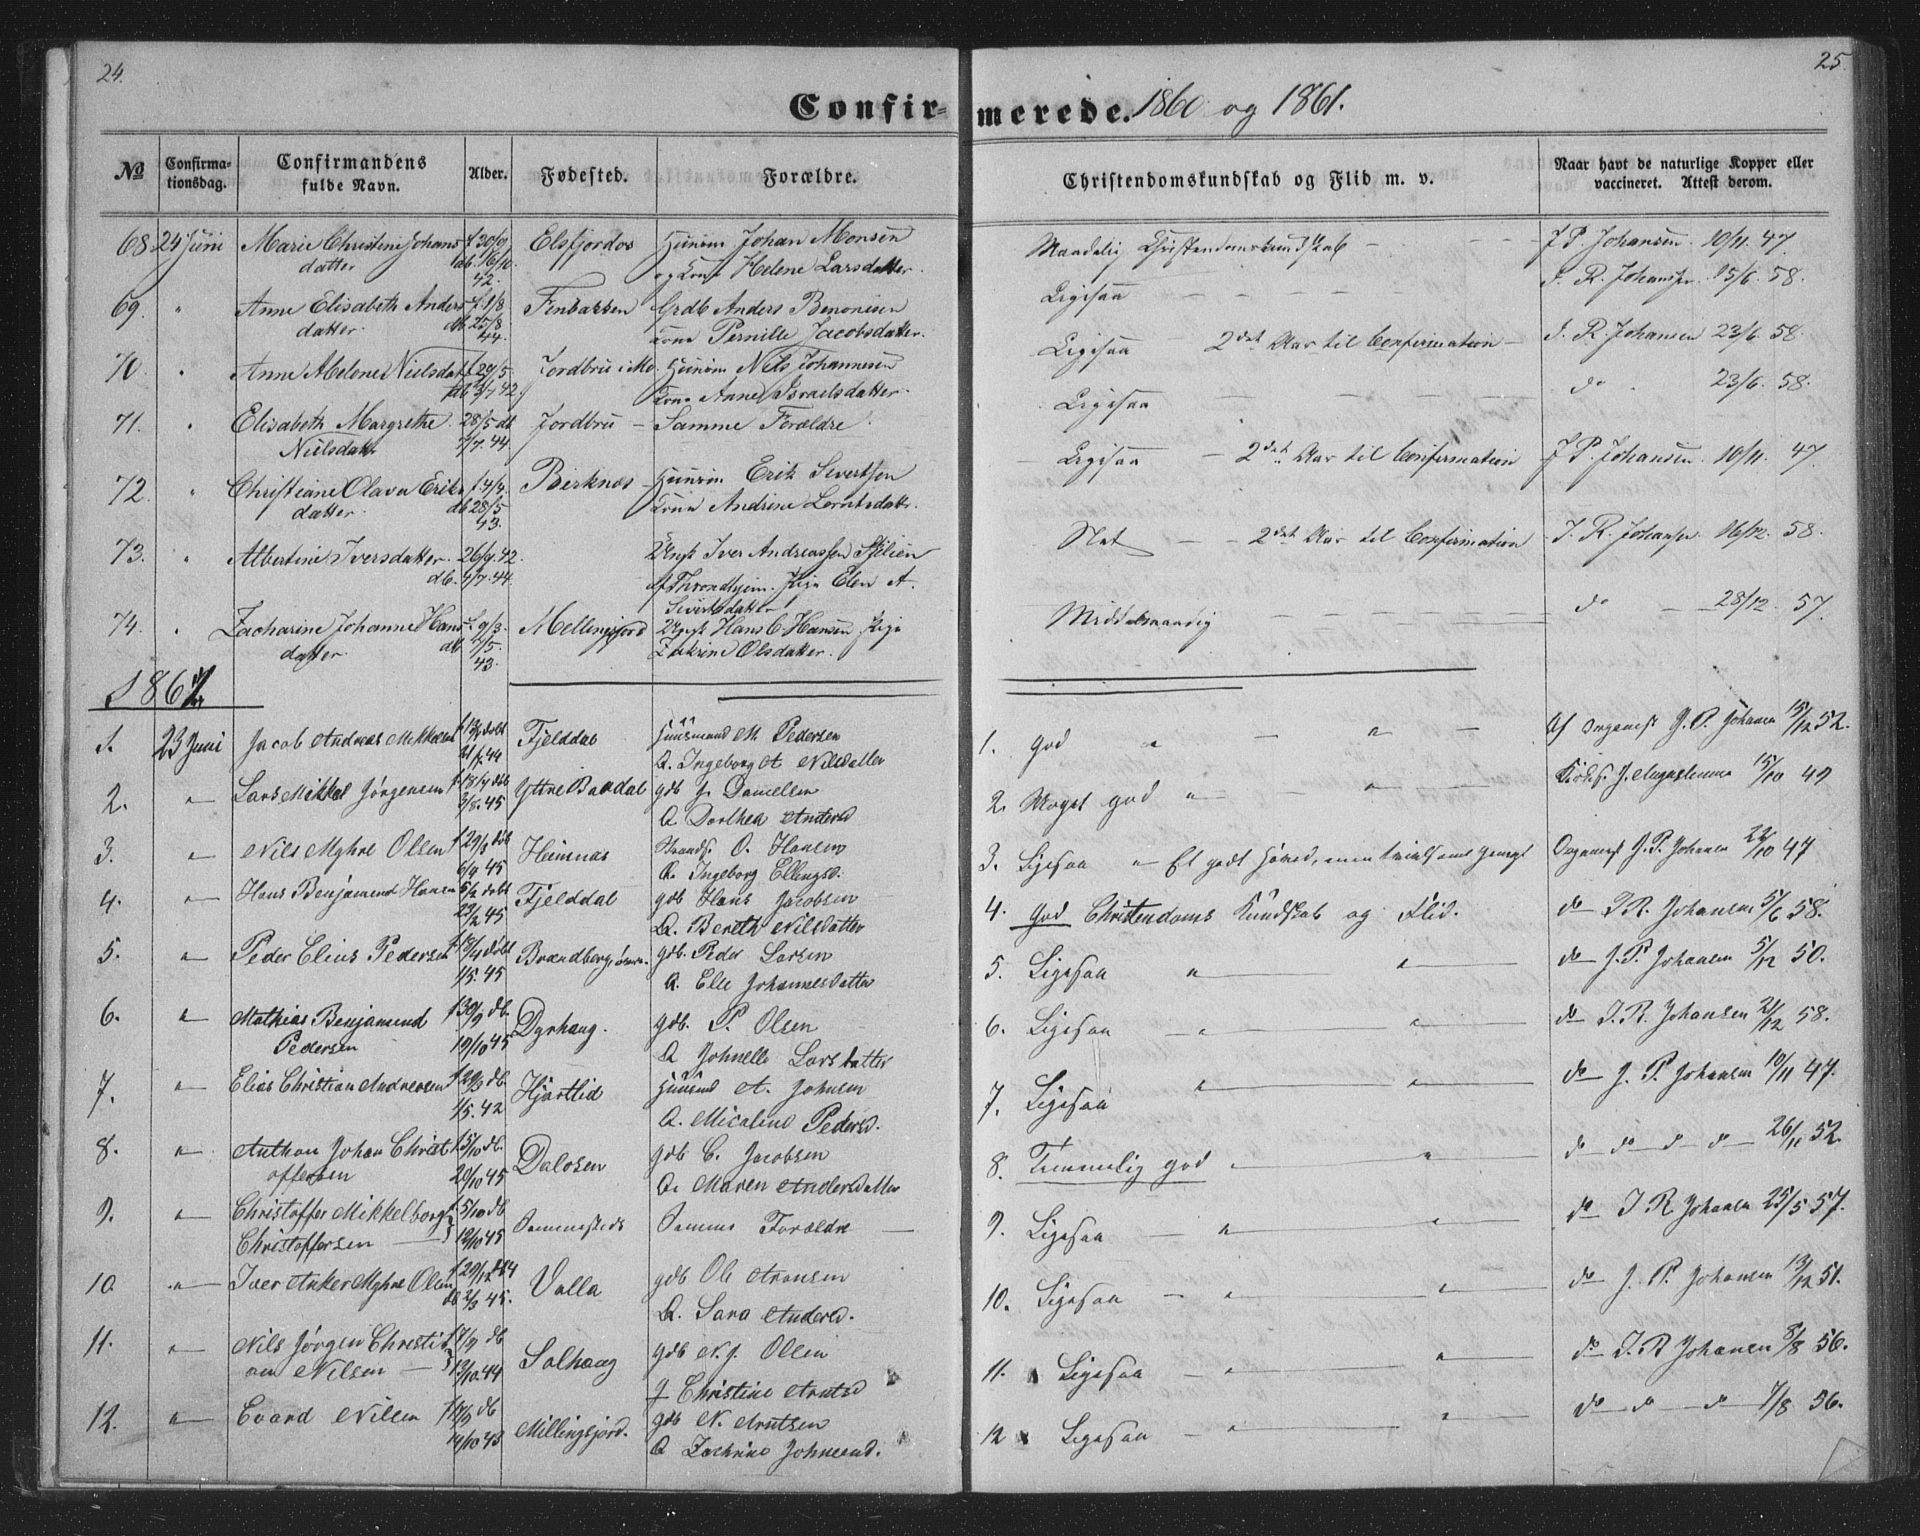 24.
25.
Confirmerede. 1860 og 1861.
№ Confirmationsdag. Confirmandens fulde Navn. Alder. Fødested. Forældre. Christendomskundskab og Flid m. v. Naar havt de naturlige Kopper eller vaccineret. Attest derom.
68. 24 Juni Marie Christine Johans f 30/9 Elsfjordos Huusm Johan Monsen
datter db. 16/10. og Kone Helene Larsdatter
42.
Maadelig Christendomskundskab J P. Johansen. 10/11. 47.
69. " Anne Elisabeth Anders f. 1/8 Finbakken Grdb Anders Benonisen
datter. db 25/8 Kone Pernille Jacobsdatter.
44.
Ligesaa I. R. Johansen. 15/6. 58.
70. " Anne Melene Nielsdat f. 29/5 Jordbru i Mo. Huusm Nils Johannesen
db 3/7 42. Kone Anne Israelsdatter.
Ligesaa - 2det Aar til Confirmation - I. R. Johansen 23/6. 58.
71. " Elisabeth Margrethe 28/5 db Jordbru - Samme Forældre.
Nielsdatt 7/7. 44.
Ligesaa do 23/6. 58.
72. " Christiane Olava Eriks f. 4/3. Birknes - Huusm Erik Sivertsen
datter. db 28/5 Kone Andrine Lorntsdatt.
43.
Ligesaa - 2det Aar til Confirmation J P. Johansen. 10/11. 47.
73. " Albertine Iversdatter. 26/9. 42. Ungk Iver Andreassen
db. 4/7. 44. af Throndhjem. Pige Elen A.
Sivertsdatter
Slet - - 2det Aar til Confirmation I. R. Johansen 16/12. 58.
74. " Zacharine Johanne Hans f. 9/3. Mellingsfjord Ungk Hans C. Hansen Pige
datter. db 7/5. Zakrine Olsdatter.
43.
Middelmaadig do - 28/12. 57.
1861
1. 23 Juni Jacob Andreas Mikkelsen Fjelddal Huusmand M. Pedersen
44 Q. Ingeborg A Nilsdatter
1. God " - " - J. P. Johansen 15/12 52.
2. " Lars Mikkel Jørgensen f 18/7 døb Yttre Bardal gdb J. Danielsen
3/8. 45 Q. Dorthea Andersd
2. Meget god " - " - 15/10 49
3. " Nils Myhre Olsen f 29/3 døb Heimnæs O. Hansen
6/9 45 Q. Ingeborg Ellingsd.
3. Ligesaa " Et godt Hoved, men J. P. Johansen 22/10 47
4. " Hans Benjamend Hansen 5/2 døbt Fjelddal gdb Hans Jacobsen
22/2 45 Q. Bereth Nilsdatter
4. God Christendoms Kundskab og Flid. do I R. Johansen 5/6 58.
5. " Peder Elius Pedersen f 18/4 døbt gdb. Peder Larsen
1/5. 45 Q. Elle Johannesdatter
5. Ligesaa " " do J. P. Johansen 5/12 50.
6. " Mathias Benjamend f 30/9 db. Dyrhaug. gdb. P. Olsen
Pedersen 19/10 45 Q Johnelle Larsdatter
6. Ligesaa " " do I. R. Johansen 21/12 58.
7. " Elias Christian Andresen f 20/3 db. Hjartlid Huusmd A. Johnsen
1/5. 42 Q. Micaline Pedersd.
7. Ligesaa " " do J. P. Johansen 10/11 47.
8. " Anthon Johan Christ f 5/10 db. Dalosen gdb C. Jacobsen
offersen 20/10 45 Q. Maren Andersdatter
8. Temmelig god " " do do do do 26/11 52.
9. " Christoffer Mikkelborg f. 5/10 db Sammesteds Samme Forældre
Christoffersen 12/10 45
9. Ligesaa " " do I R Johansen 25/5 57.
10. " Iver Anker Myhre Olsen f 29/12 44 Valla gdb Ole Aronsen
db 2/3 45. Q. Sara Andersd.
10. Ligesaa " " do J. P. Johansen 13/12 51.
11. " Nils Jørgen Christi f 7/9 db Solhaug gdb N. J. Olsen
an Nilsen 13/10. 44 Q Christine Arntsd
11. Ligesaa " " do I. R Johansen 8/8 56.
12. " Evard Nilsen db Millingsfjord. gdb N. Arntsen
19/10 45 Q Zackrine Johnsend.
12 Ligesaa " " do do do 7/8 56.